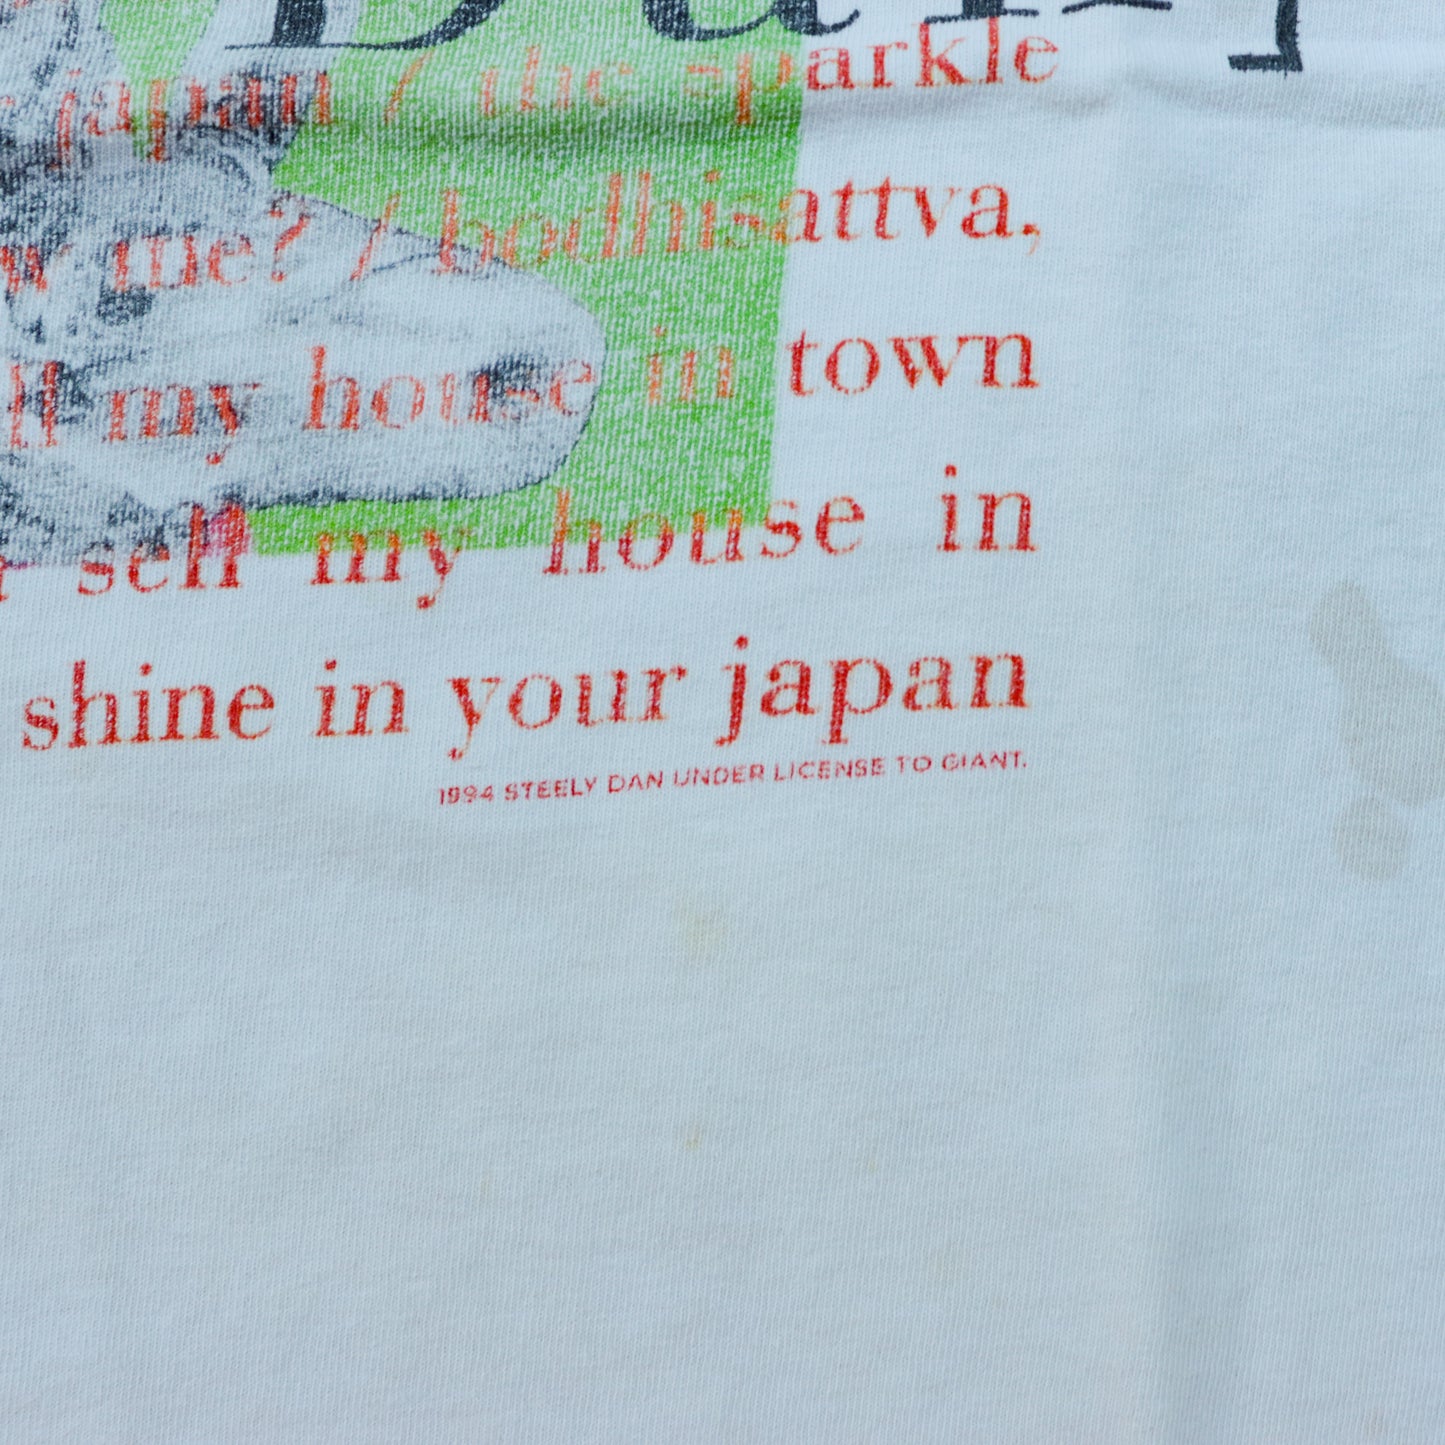 Dan
japan / the sparkle
me? / bodhisattva,
my house in town
sell my house in
shine in your japan
1994 STEELY DAN UNDER LICENSE TO GIANT.